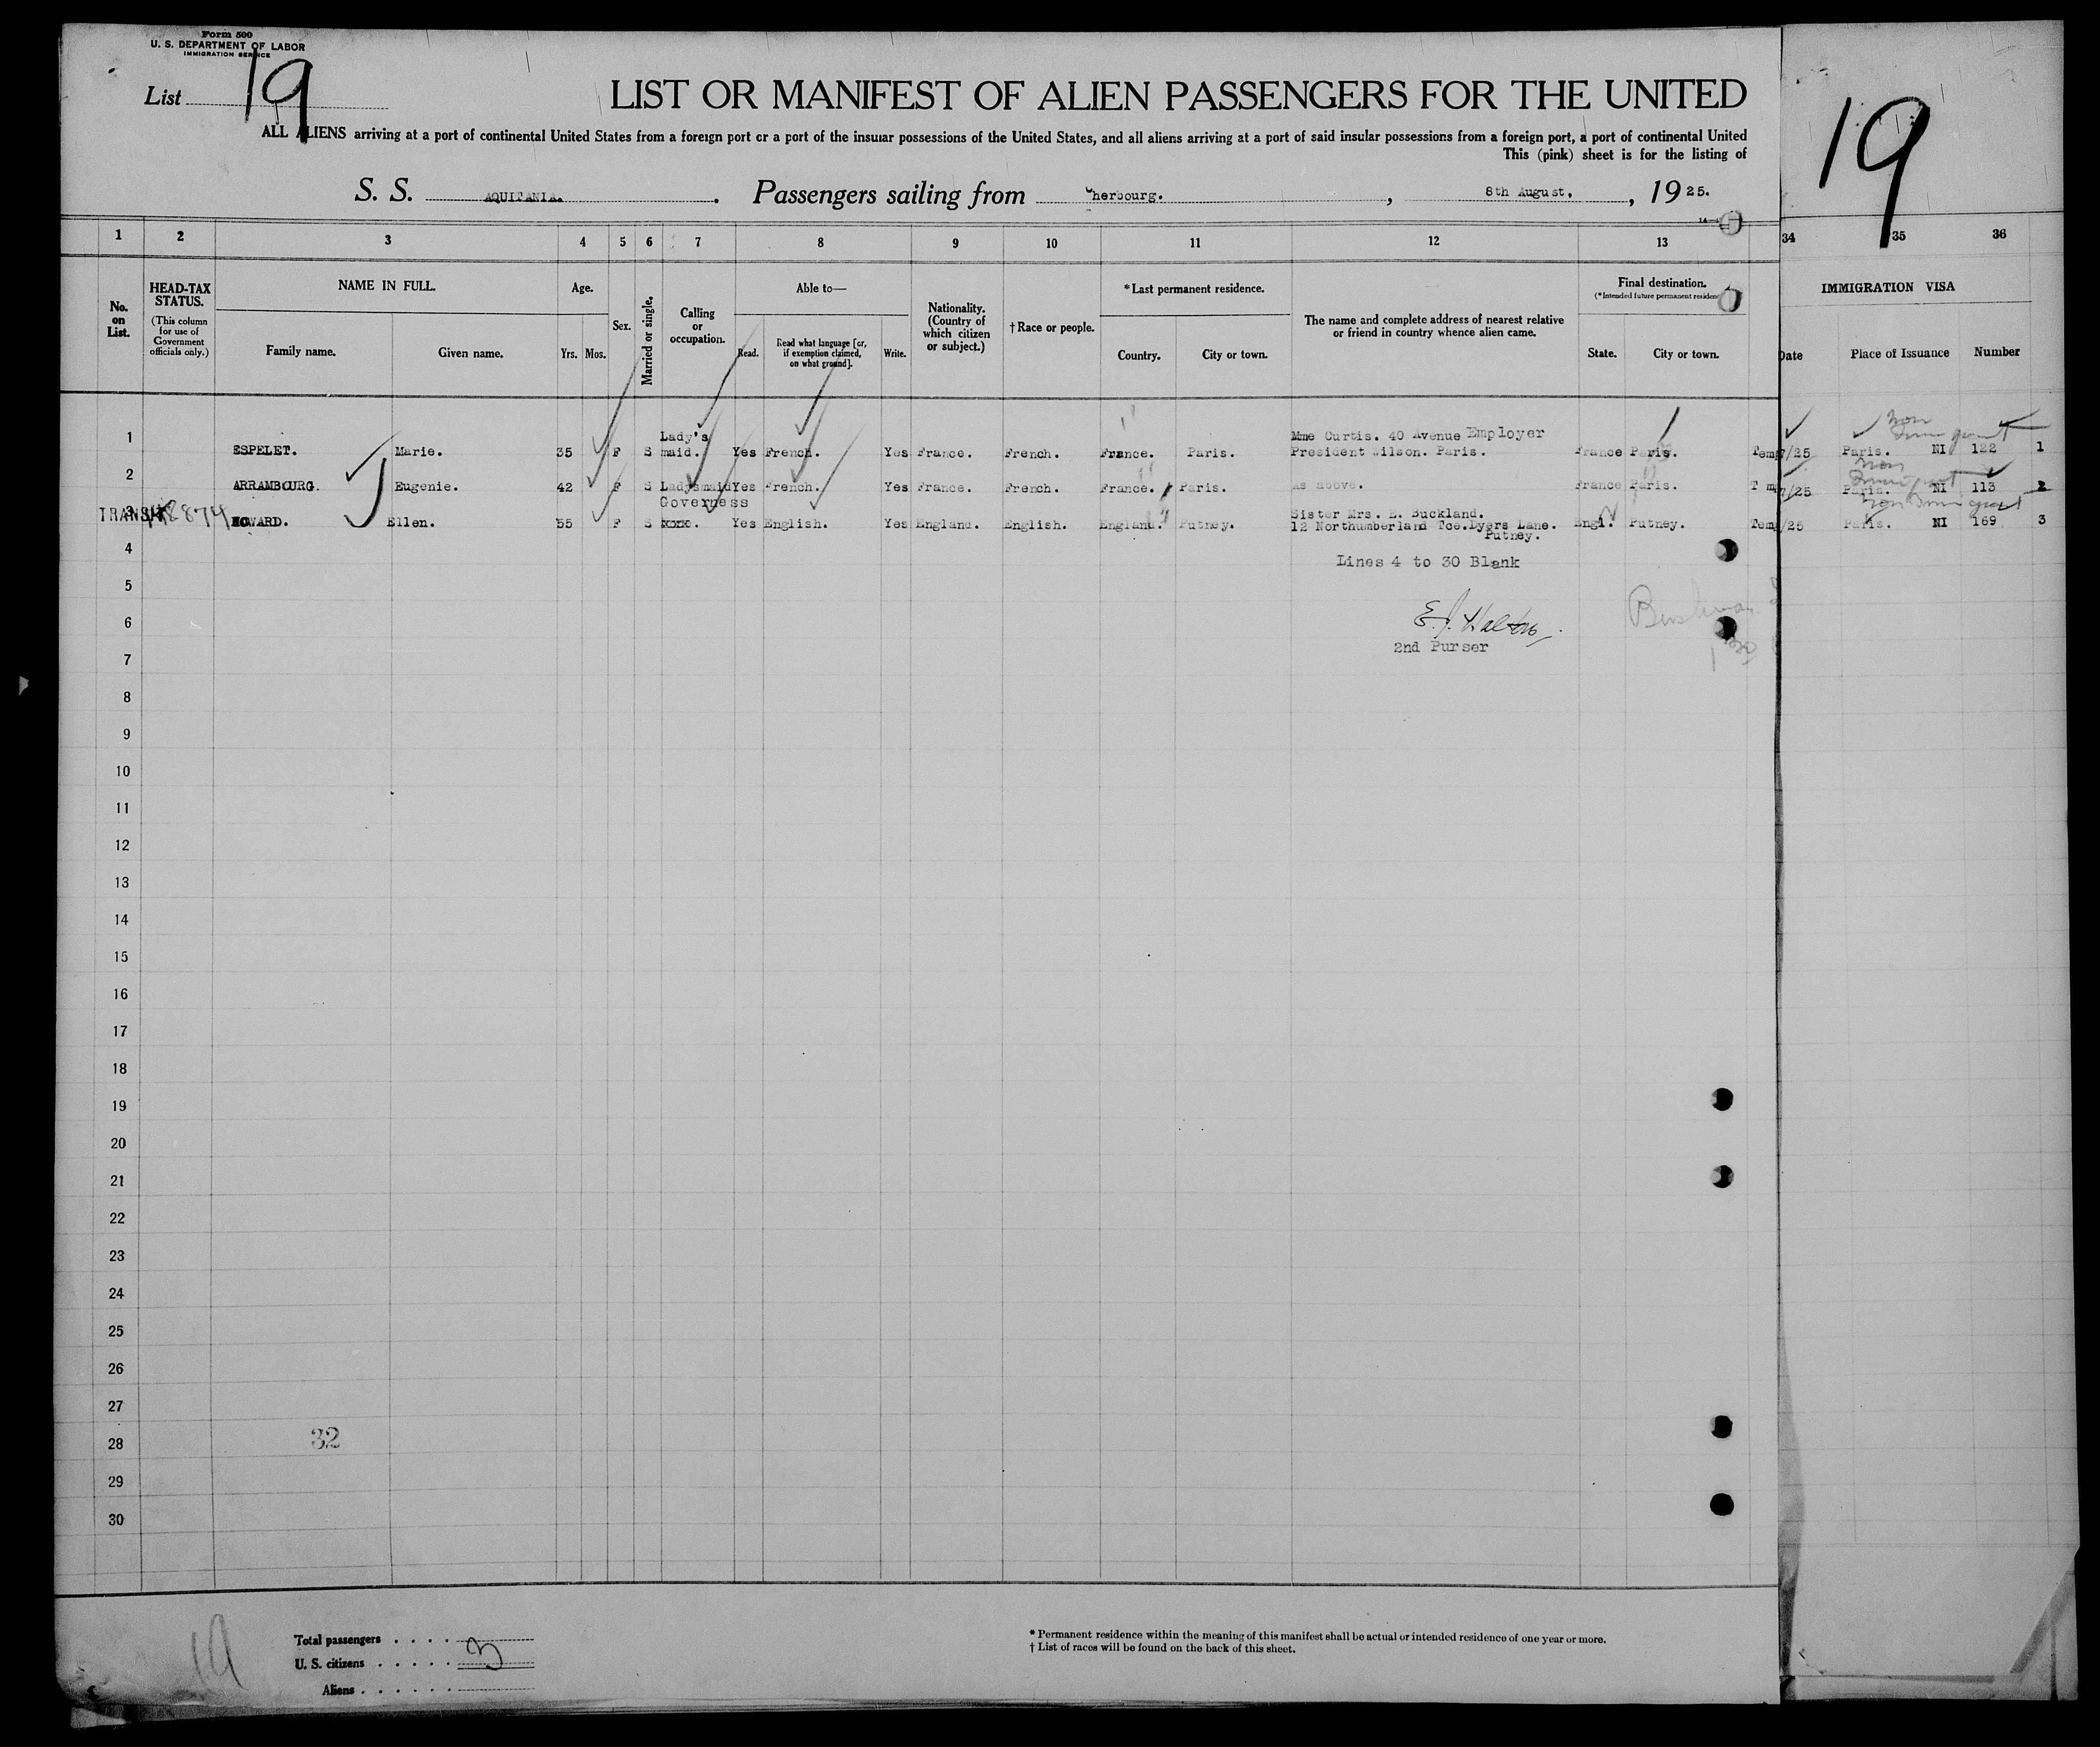 Form 500
U. S. DEPARTMENT OF LABOR
IMMIGRATION SERVICE
List 19
LIST OR MANIFEST OF ALIEN PASSENGERS FOR THE UNITED
19
ALL ALIENS arriving at a port of continental United States from a foreign port or a port of the insular possessions of the United States, and all aliens arriving at a port of said insular possessions from a foreign port, a port of continental United
This (pink) sheet is for the listing of
S. S. AQUITANIA. Passengers sailing from Cherbourg. , 8th August. , 1925.
1 2 3 4 5 6 7 8 9 10 11 12 13 34 35 36
No. on List.
HEAD-TAX STATUS.
(This column for use of Government officials only.)
NAME IN FULL.
Family name. Given name.
Age.
Yrs. Mos.
Sex.
Married or single.
Calling or occupation.
Able to—
Read. Read what language [or, if exemption claimed, on what ground]. Write.
Nationality. (Country of which citizen or subject.)
†Race or people.
*Last permanent residence.
Country. City or town.
The name and complete address of nearest relative or friend in country whence alien came.
Final destination.
(*Intended future permanent residence
State. City or town.
IMMIGRATION VISA
Date Place of Issuance Number
Lady's Mme Curtis. 40 Avenue Employer Non Immigrant
1 ESPELET. Marie. 35 F S maid. Yes French. Yes France. French. France. Paris. President Wilson. Paris. France Paris. Tem 7/25 Paris. NI 122 1
Non Immigrant
2 ARRAMBOURG. Eugenie. 42 F S Ladysmaid Yes French. Yes France. French. France. Paris. as above. France Paris. T m 7/25 Paris. NI 113 2
Governess Sister Mrs. E. Buckland. Non Immigrant
3 TRANSIT HOWARD. Ellen. 55 F S xxxx. Yes English. Yes England. English. England. Putney. 12 Northumberland Tce.Dyers Lane. Engl. Putney. Tem /25 Paris. NI 169 3
Putney.
4
Lines 4 to 30 Blank
5
6
2nd Purser
7
8
9
10
11
12
13
14
15
16
17
18
19
20
21
22
23
24
25
26
27
32
28
29
30
19
Total passengers . . . . 3
U. S. citizens . . . . .
Aliens . . . . . .
* Permanent residence within the meaning of this manifest shall be actual or intended residence of one year or more.
† List of races will be found on the back of this sheet.